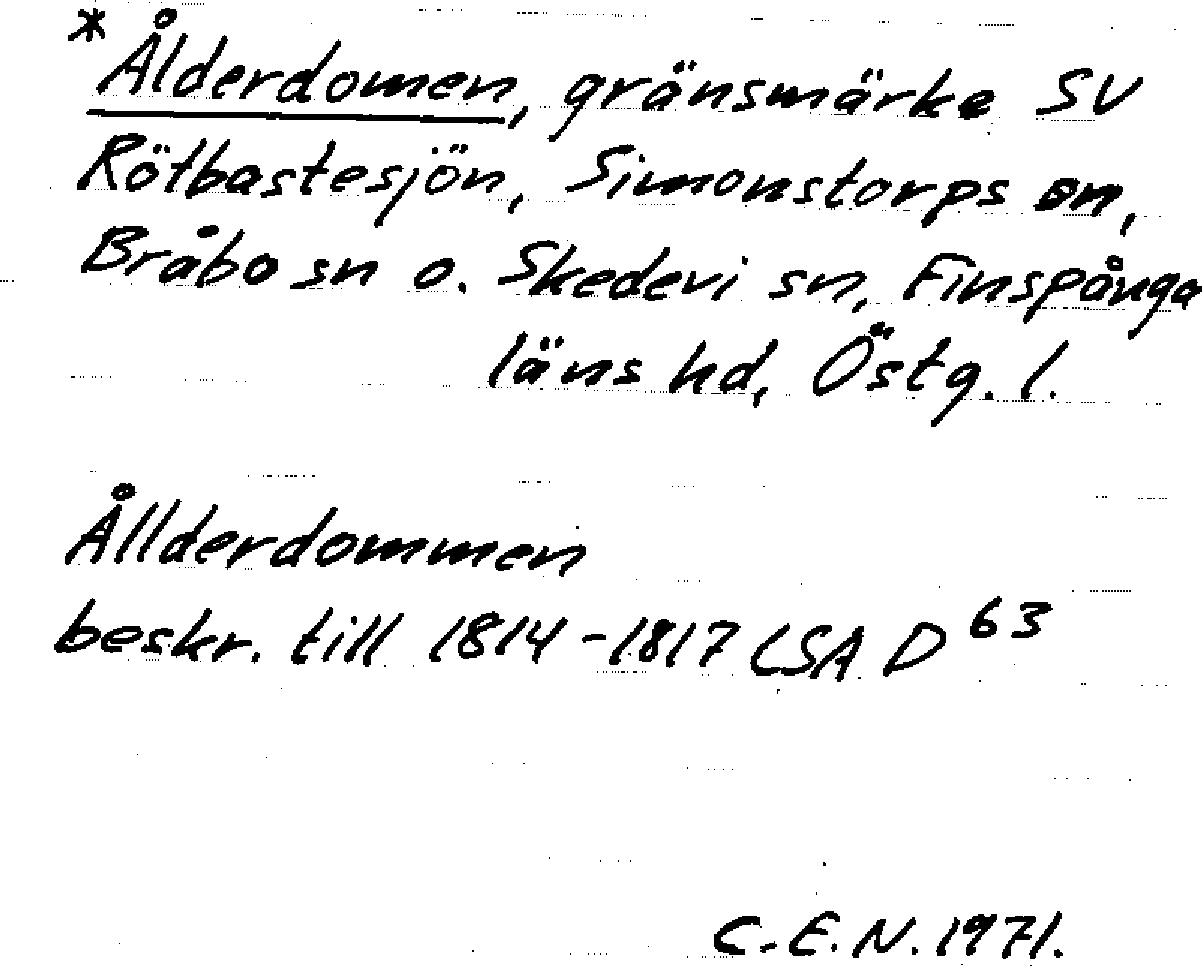 *Ålderdomen, gränsmärke SV
Rötbastesjön, Simonstorps sn,
Bråbo sn o. Skedevi sn, Finspånga
läns hd, Östg. l.
Ållderdommen
beskr. till 1814-1817 LSA D 63
C.E.N. 1971.